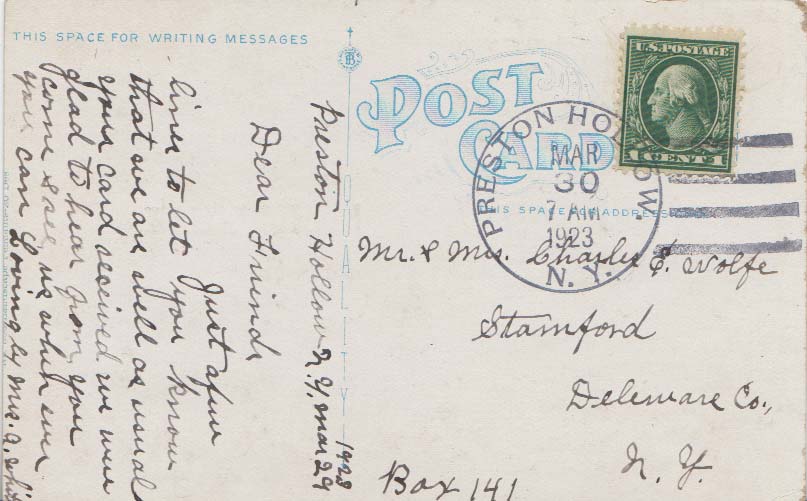 THIS SPACE FOR WRITING MESSAGES
Preston Hollow N.Y, Mar 29
1923
Dear Friends
Just a few
lines to let you know
that we are well as usual
your card received we were
glad to hear from you
come & see us when ever
you can Lovingly Mrs. A.
QUALITY
POST
CARD
U.S. POSTAGE
1 CENT 1
PRESTON HOLLOW.
MAR
30
7 AM
1923
N. Y.
THIS SPACE FOR ADDRESS
Mr. & Mrs. Charles E. Wolfe
Stamford
Deleware Co.,
N. Y.
Box 141